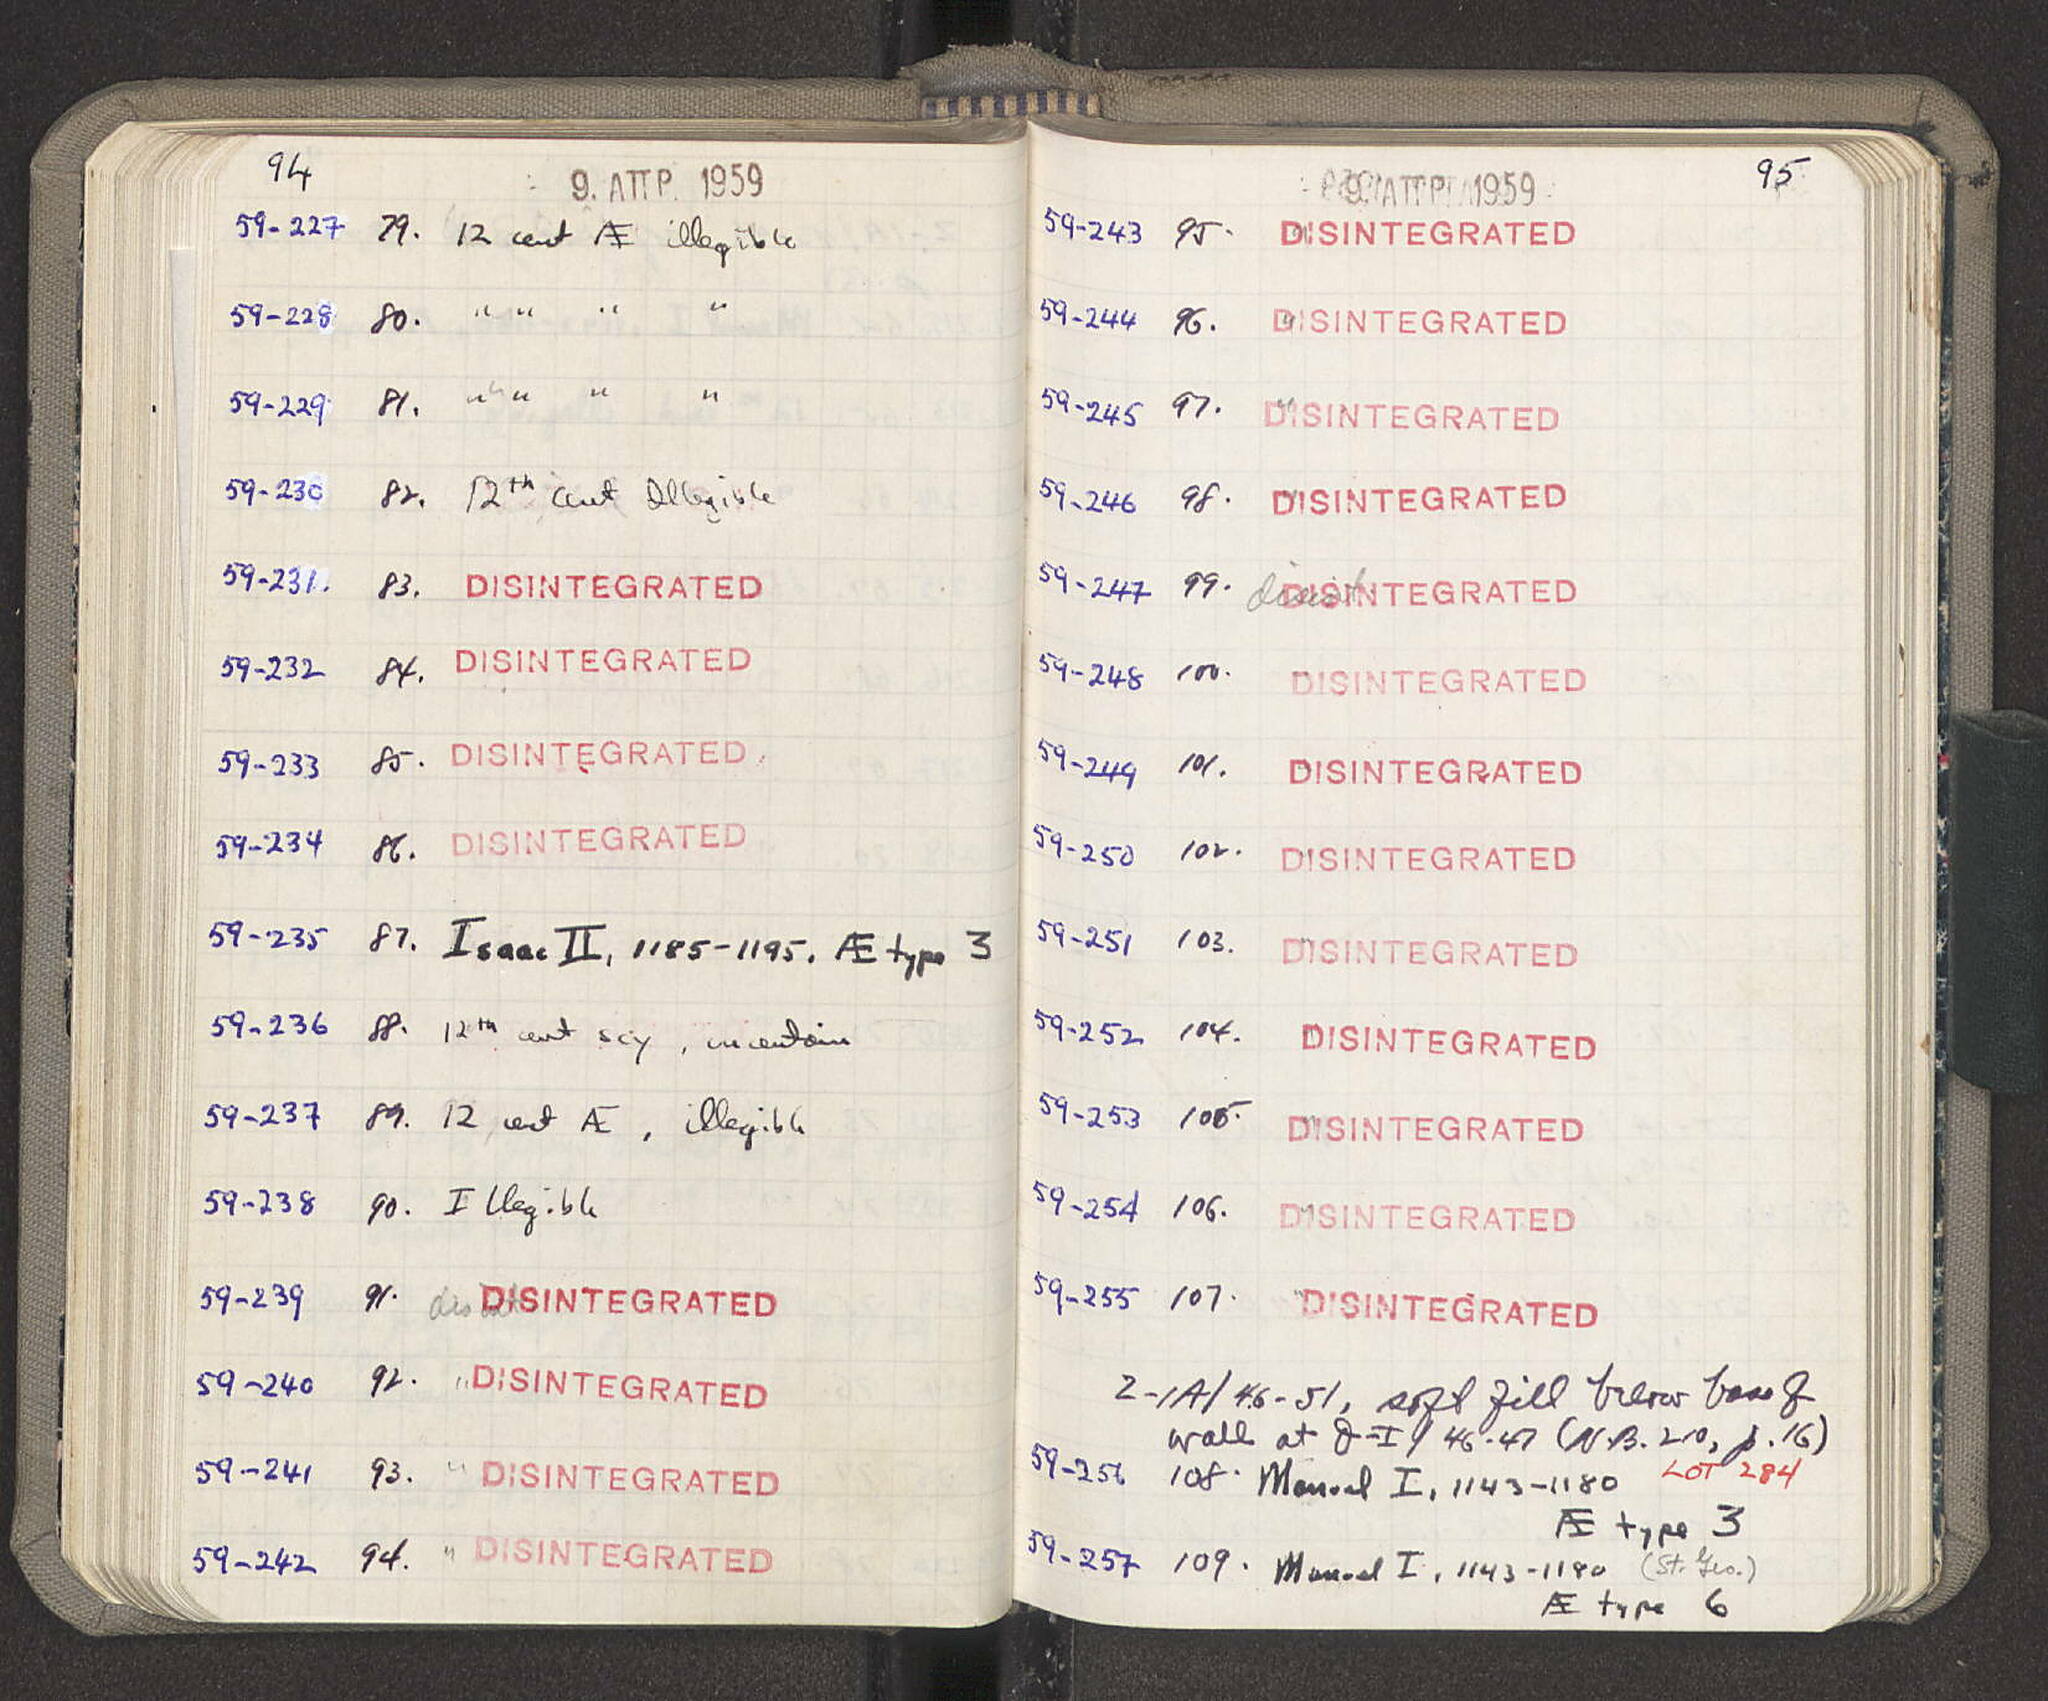 94
9. ΑΠΡ. 1959
59-227 79. 12 cent Æ illegible
59-228 80. " " " "
59-229 81. " " " "
59-230 82. 12th cent Illegible
59-231. 83. DISINTEGRATED
59-232 84. DISINTEGRATED
59-233 85. DISINTEGRATED
59-234 86. DISINTEGRATED
59-235 87. Isaac II, 1185-1195. Æ type 3
59-236 88. 12th cent scy, uncertain
59-237 89. 12 cent Æ, illegible
59-238 90. Illegible
59-239 91. disint DISINTEGRATED
59-240 92. " DISINTEGRATED
59-241 93. " DISINTEGRATED
59-242 94. " DISINTEGRATED
95
9. ΑΠΡ. 1959
59-243 95. " DISINTEGRATED
59-244 96. " DISINTEGRATED
59-245 97. " DISINTEGRATED
59-246 98. " DISINTEGRATED
59-247 99. disint DISINTEGRATED
59-248 100. DISINTEGRATED
59-249 101. DISINTEGRATED
59-250 102. DISINTEGRATED
59-251 103. " DISINTEGRATED
59-252 104. " DISINTEGRATED
59-253 105. " DISINTEGRATED
59-254 106. " DISINTEGRATED
59-255 107. " DISINTEGRATED
Z-1A/46-51, soft fill below base of
wall at 46-47 (N.B. 210, p. 16)
LOT 284
59-256 108. Manuel I, 1143-1180
Æ type 3
59-257 109. Manuel I, 1143-1180 (St. Geo.)
Æ type 6